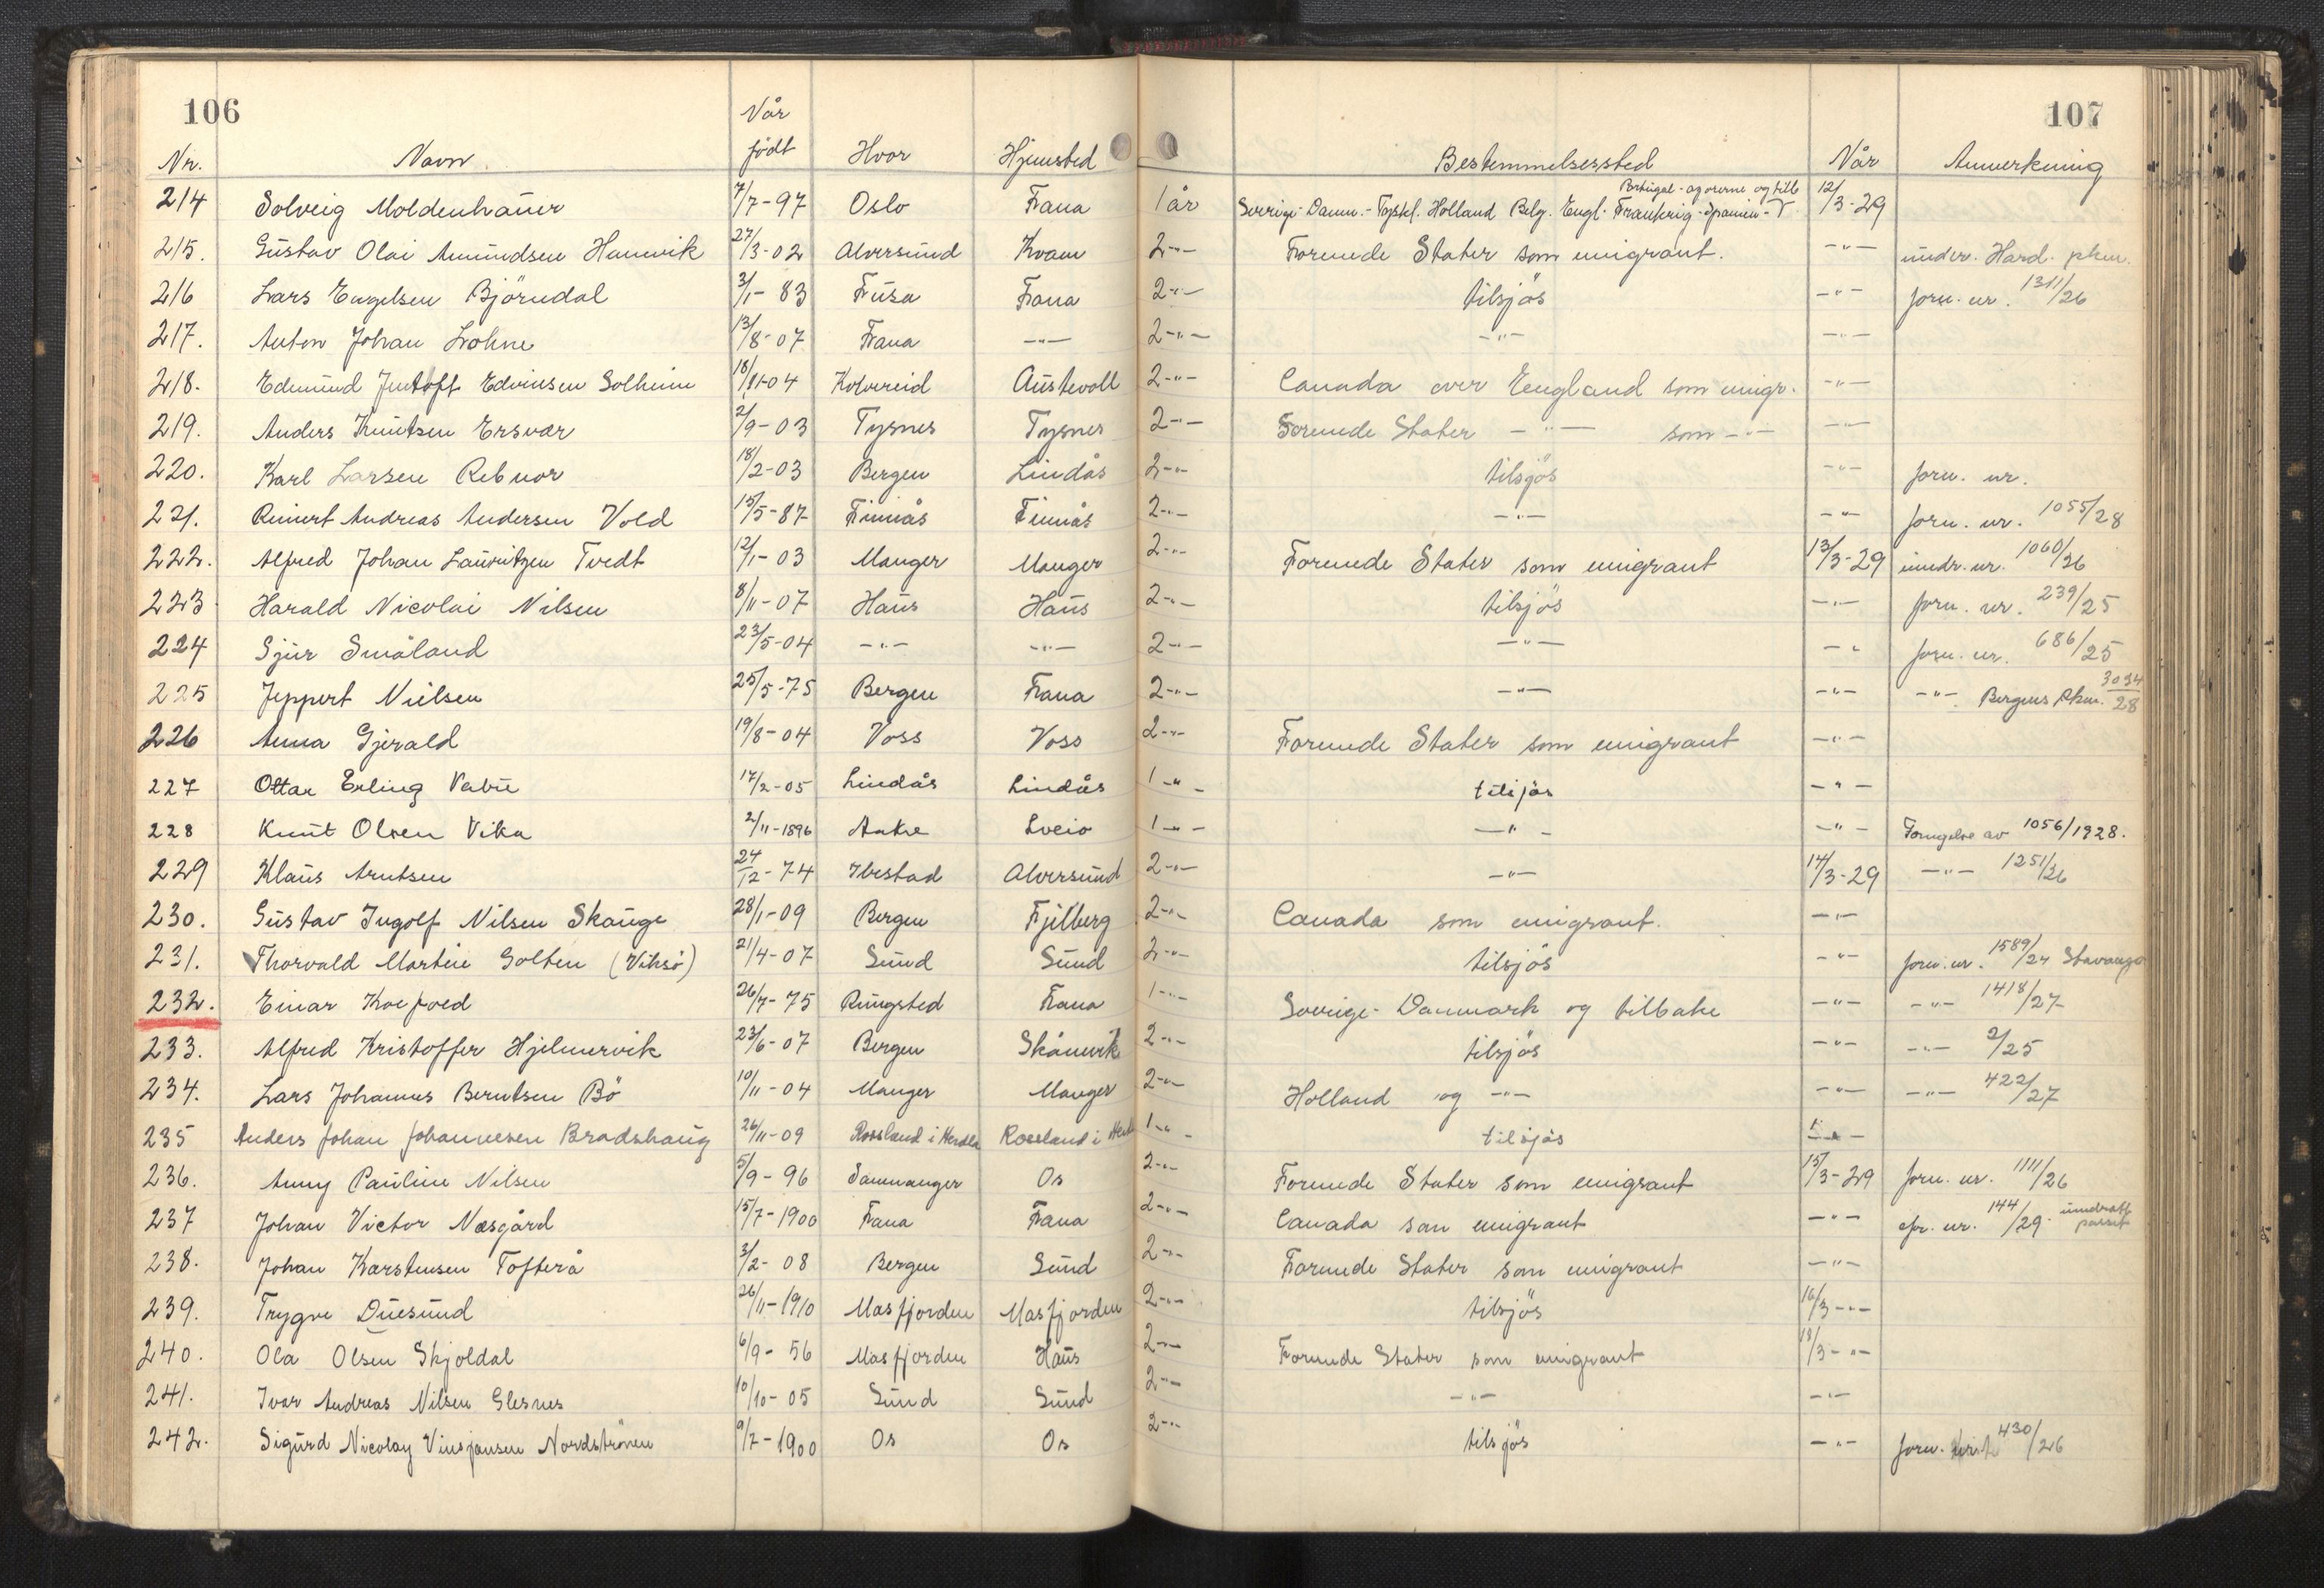 106
107
Nr. Navn Når født Hvor Hjemsted Bestemmelsessted Når Anmerkning
214 Solveig Moldenhauer 7/7-97 Oslo Fana 1 år Sverige-Danm.-Tyskl. Holland Belg. Engl. Frankrig-Spanien- Portugal-azorerne og tilb 12/3-29
215. Gustav Olai Amundsen Hamvik 27/3-02 Alversund Kvam 2-"- Forenede Stater som emigrant. -"- inndr. Hard. pkm.
216 Lars Engelsen Björndal 3/1-83 Fusa Fana 2-"- tilsjös -"- forn. nr. 1311/26
217. Anton Johan Lohne 13/8-07 Fana -"- 2-"- -"- -"-
218. Edmund Jentoft Edvinsen Solheim 18/11-04 Kolvereid Austevoll 2-"- Canada over England som emigr. -"-
219. Anders Knutsen Ersvær 2/9-03 Tysnes Tysnes 2-"- Forenede Stater -"- som -"- -"-
220. Karl Larsen Rebnor 18/2-03 Bergen Lindås 2-"- tilsjös -"- forn. nr.
221. Reinert Andreas Andersen Vold 15/5-87 Finnås Finnås 2-"- -"- -"- forn. nr. 1055/28
222. Alfred Johan Lauritzen Tvedt 12/1-03 Manger Manger 2-"- Forenede Stater som emigrant 13/3-29 inndr. nr. 1060/26
223 Harald Nicolai Nilsen 8/11-07 Haus Haus 2-"- tilsjös -"- forn. nr. 239/25
224 Sjur Småland 23/5-04 -"- -"- 2-"- -"- -"- forn. nr. 686/25
225 Jeppert Nielsen 25/5-75 Bergen Fana 2-"- -"- -"- -"- Bergens pkm. 3034/28
226 Anna Gjerald 19/8-04 Voss Voss 2-"- Forenede Stater som emigrant -"-
227 Ottar Erling Vabø 17/2-05 Lindås Lindås 1-"- tilsjös -"-
228 Knut Olsen Vika 2/11-1896 Aakre Sveio 1-"- -"- -"- Fornyelse av 1056/1928.
229 Klaus Arntsen 24/12-74 Ibestad Alversund 2-"- -"- 14/3-29 -"- 1251/26
230. Gustav Ingolf Nilsen Skauge 28/1-09 Bergen Fjelberg 2-"- Canada som emigrant. -"-
231. Thorvald Martin Golten (Viksö) 21/4-07 Sund Sund 2-"- tilsjös -"- forn. nr. 1589/24 Stavanger
232. Einar Koefoed 26/7-75 Ringsted Fana 1-"- Sverige-Danmark og tilbake -"- -"- 1418/27
233. Alfred Kristoffer Hjelmervik 23/6-07 Bergen Skånevik 2-"- tilsjös -"- -"- 2/25
234. Lars Johannes Berntsen Bö 10/11-04 Manger Manger 2-"- Holland og -"- -"- -"- 422/27
235 Anders Johan Johannesen Bradshaug 26/11-09 Rossland i Herdla Rossland i Herdla 1-"- tilsjös -"-
236. Anny Pauline Nilsen 5/9-96 Samnanger Os 2-"- Forenede Stater som emigrant 15/3-29 forn. nr. 1111/26
237 Johan Victor Næsgård 15/7-1900 Fana Fana 2-"- Canada som emigrant -"- efr. nr. 144/29. inndratt passet
238. Johan Karstensen Tofterå 3/2-08 Bergen Sund 2-"- Forenede Stater som emigrant -"-
239. Trygve Duesund 26/11-1910 Masfjorden Masfjorden 2-"- tilsjös 16/3-"-
240. Ola Olsen Skjoldal 6/9-56 Masfjorden Haus 2-"- Forenede Stater som emigrant 18/3-"-
241. Ivar Andreas Nilsen Glesnes 10/10-05 Sund Sund 2-"- -"- -"-
242. Sigurd Nicolay Vinsjansen Nordströnen 9/7-1900 Os Os 2-"- tilsjös -"- forn. 430/26